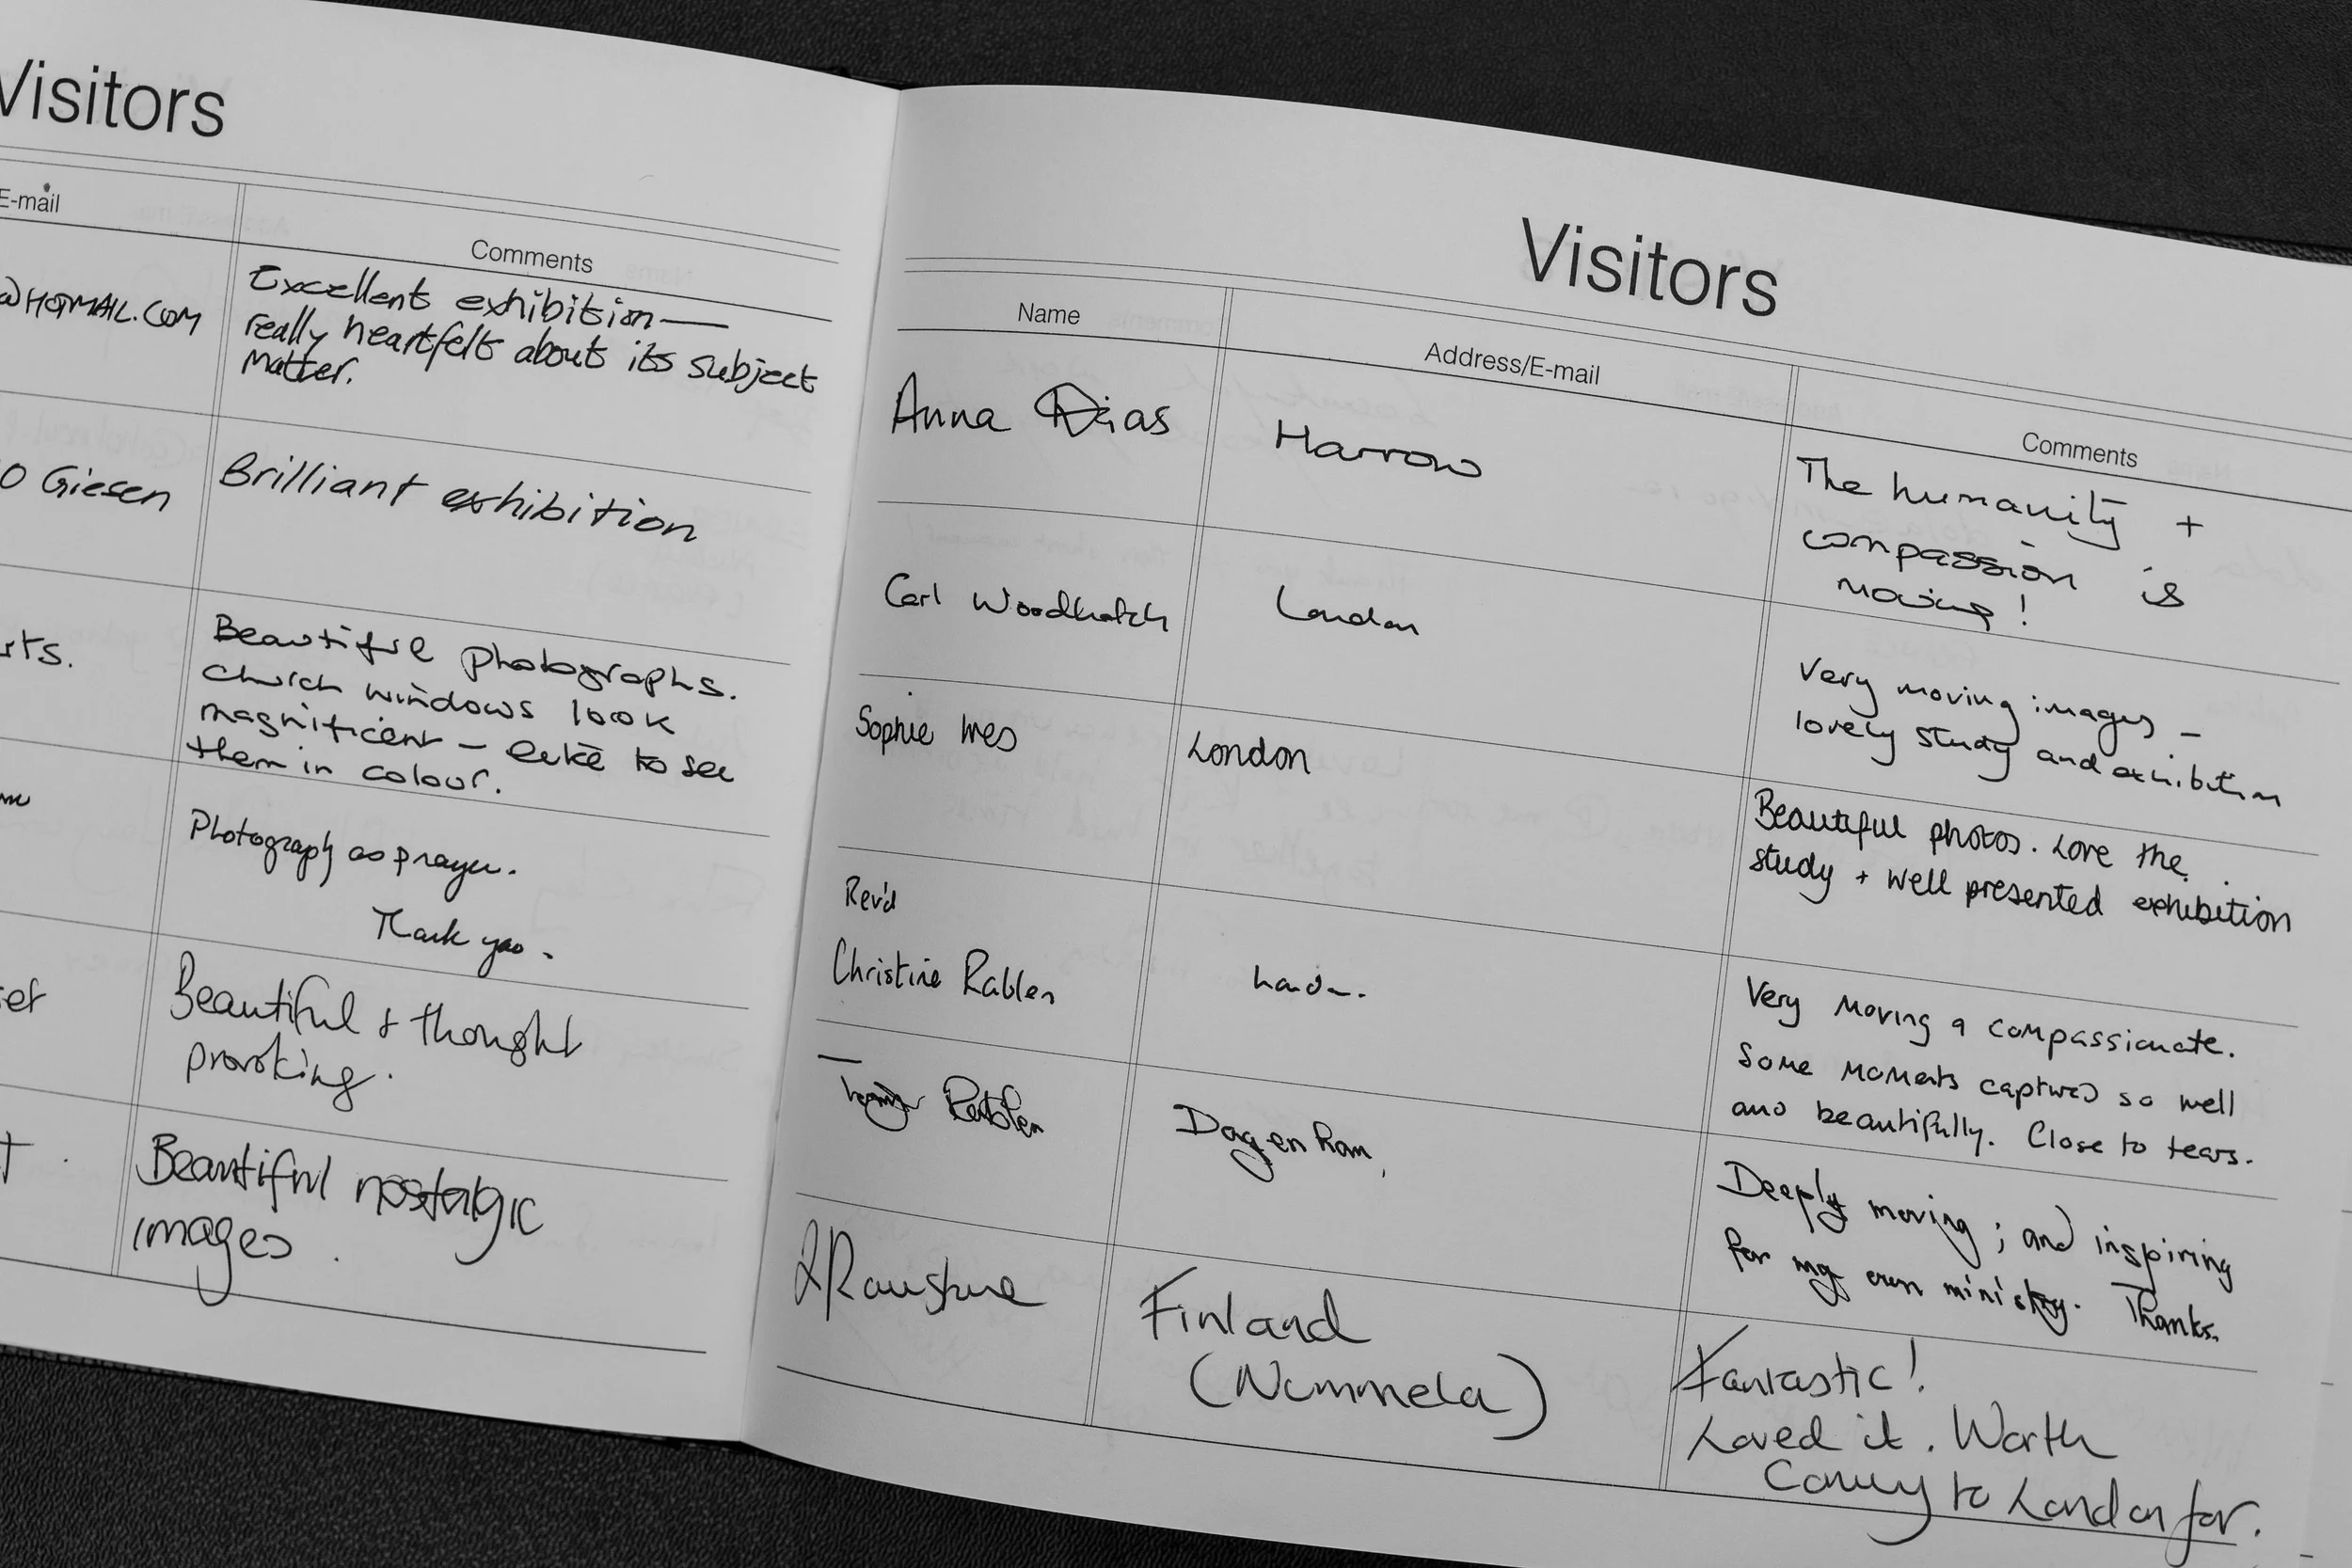 Visitors
E-mail
Comments
@HOTMAIL.COM
Excellent exhibition—
really heartfelt about its subject
matter.
Giesen
Brilliant exhibition
Beautiful photographs.
church windows look
magnificent – like to see
them in colour.
Photograph as prayer.
Thank you.
Beautiful & thought
provoking.
Beautiful nostalgic
images.
Visitors
Name
Address/E-mail
Comments
Anna Dias
Harrow
The humanity +
compassion is
moving!
Carl Woodhatch
London
Very moving images –
lovely study and exhibition
Sophie Ives
London
Beautiful photos. Love the
study + well presented exhibition
Rev'd
Christine Rablen
London.
Very moving & compassionate.
Some moments captured so well
and beautifully. Close to tears.
Rablen
Dagenham,
Deeply moving; and inspiring
for my own ministry. Thanks.
Finland
(Nummela)
Fantastic!
Loved it. Worth
Coming to London for.